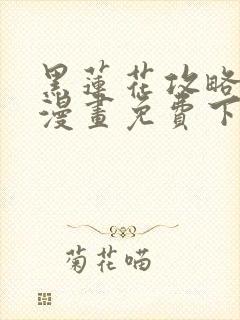 黑蓮花攻略
漫畫免費下
菊花喵